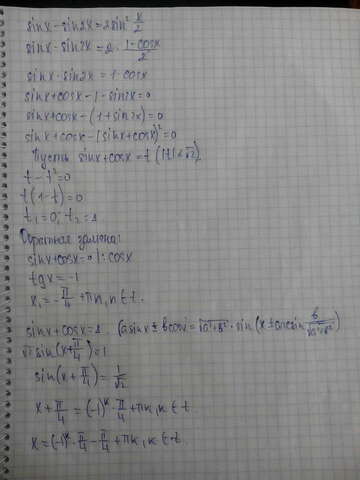 sinx - sin2x = 2sin² x/2
sinx - sin2x = 2 · (1 - cosx)/2
sinx - sin2x = 1 - cosx
sinx + cosx - 1 - sin2x = 0
sinx + cosx - (1 + sin2x) = 0
sinx + cosx - (sinx + cosx)² = 0
Пусть sinx + cosx = t (|t| ≤ √2)
t - t² = 0
t(1 - t) = 0
t₁ = 0; t₂ = 1
Обратная замена:
sinx + cosx = 0 | : cosx
tgx = -1
x₁ = -π/4 + πn, n ∈ z.
sinx + cosx = 1 (a sinx ± b cosx = √(a² + b²) · sin(x ± arcsin b/√(a² + b²)))
√2 sin(x + π/4) = 1
sin(x + π/4) = 1/√2
x + π/4 = (-1)ᵏ · π/4 + πk, k ∈ z.
x = (-1)ᵏ · π/4 - π/4 + πk, k ∈ z.